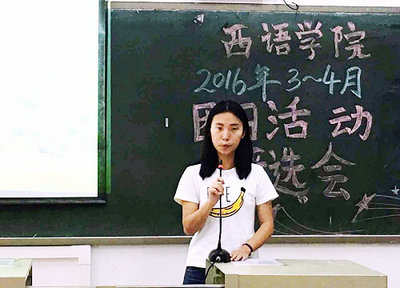 西语学院
2016年3~4月
团日活动
选会